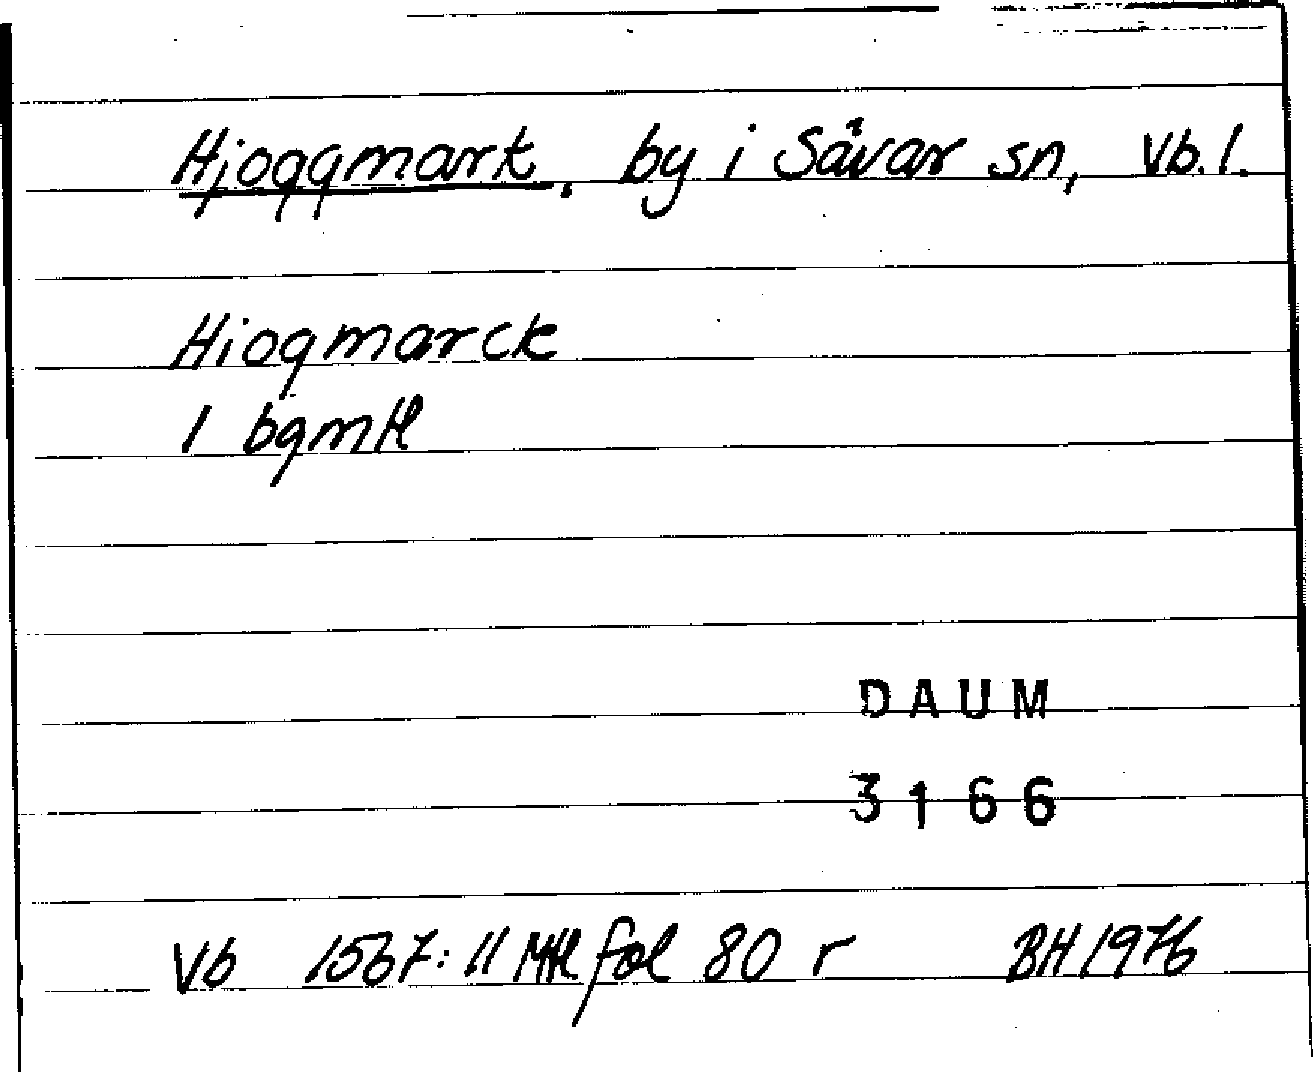 Hjoggmark, by i Sävar sn, Vb. l.
Hiogmarck
1 bgmtl
DAUM
3166
Vb 1567: 11 Mtl fol 80 r BH 1976